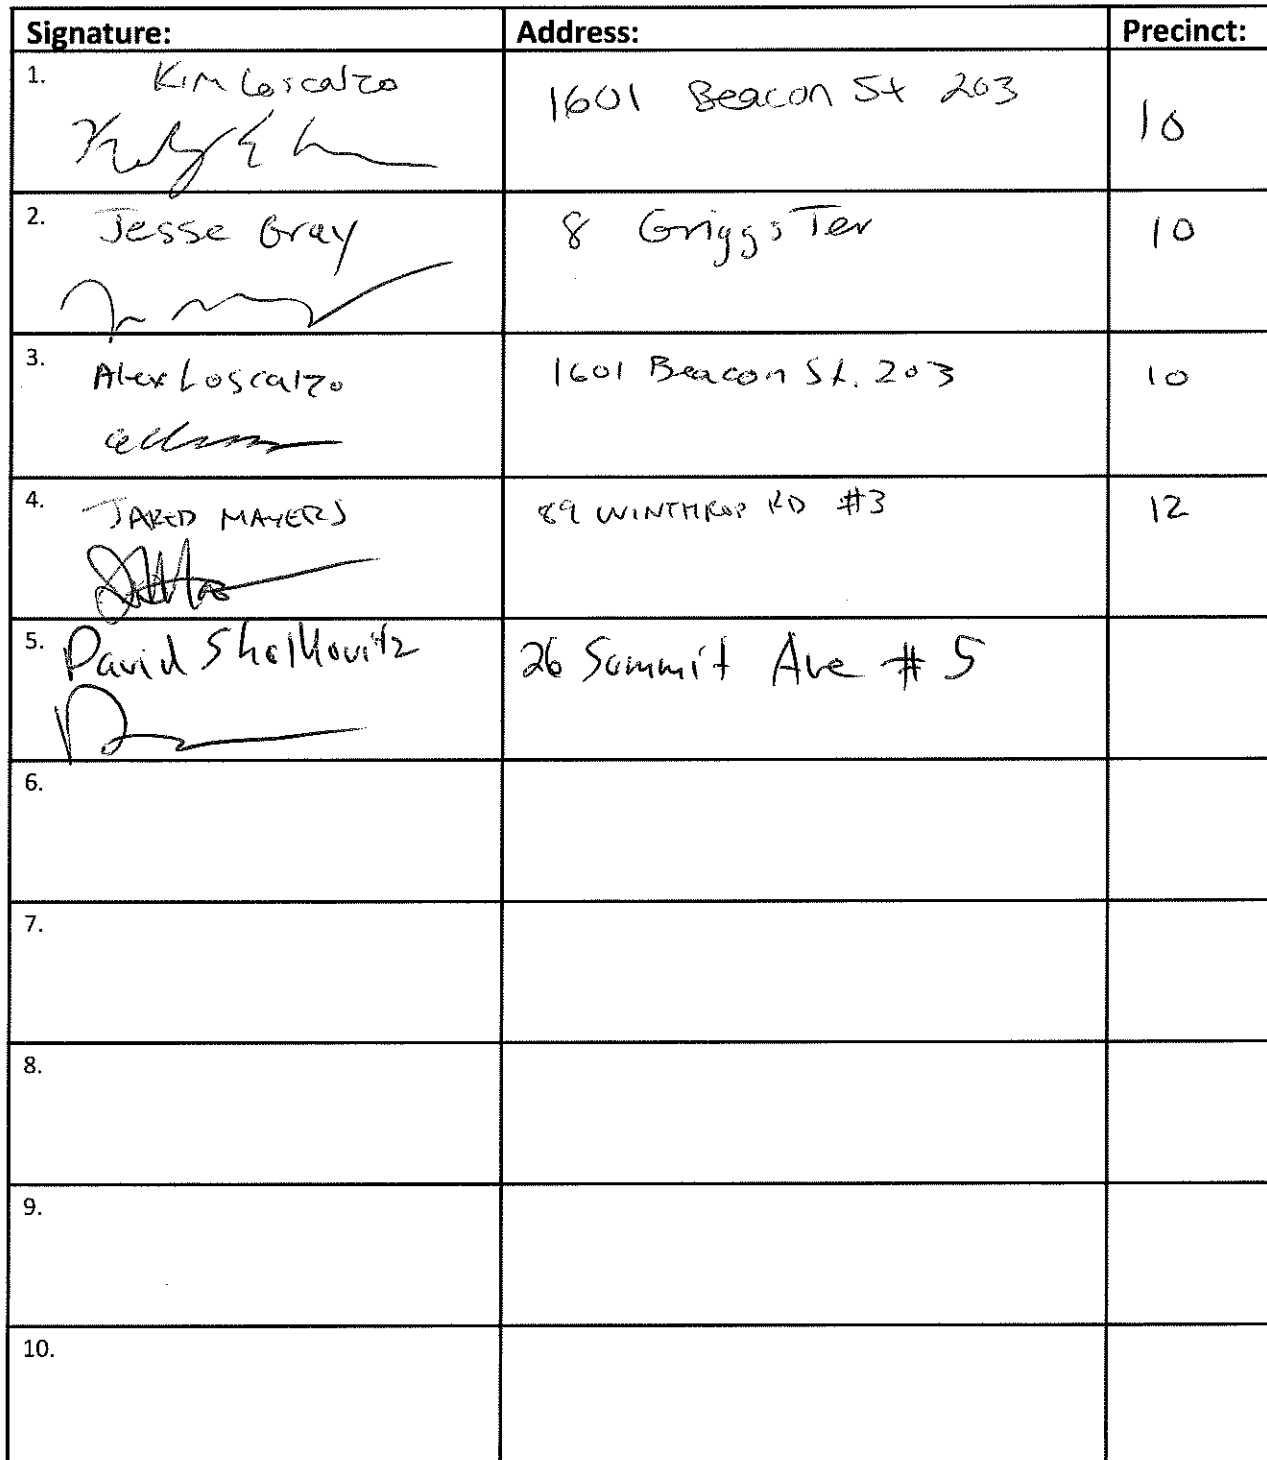 Signature: Address: Precinct:
1. Kim Loscalzo 1601 Beacon St 203 10
2. Jesse Gray 8 Griggs Ter 10
3. Alex Loscalzo 1601 Beacon St. 203 10
4. JARED MAYERS 89 WINTHROP RD #3 12
5. David 26 Summit Ave # 5
6.
7.
8.
9.
10.